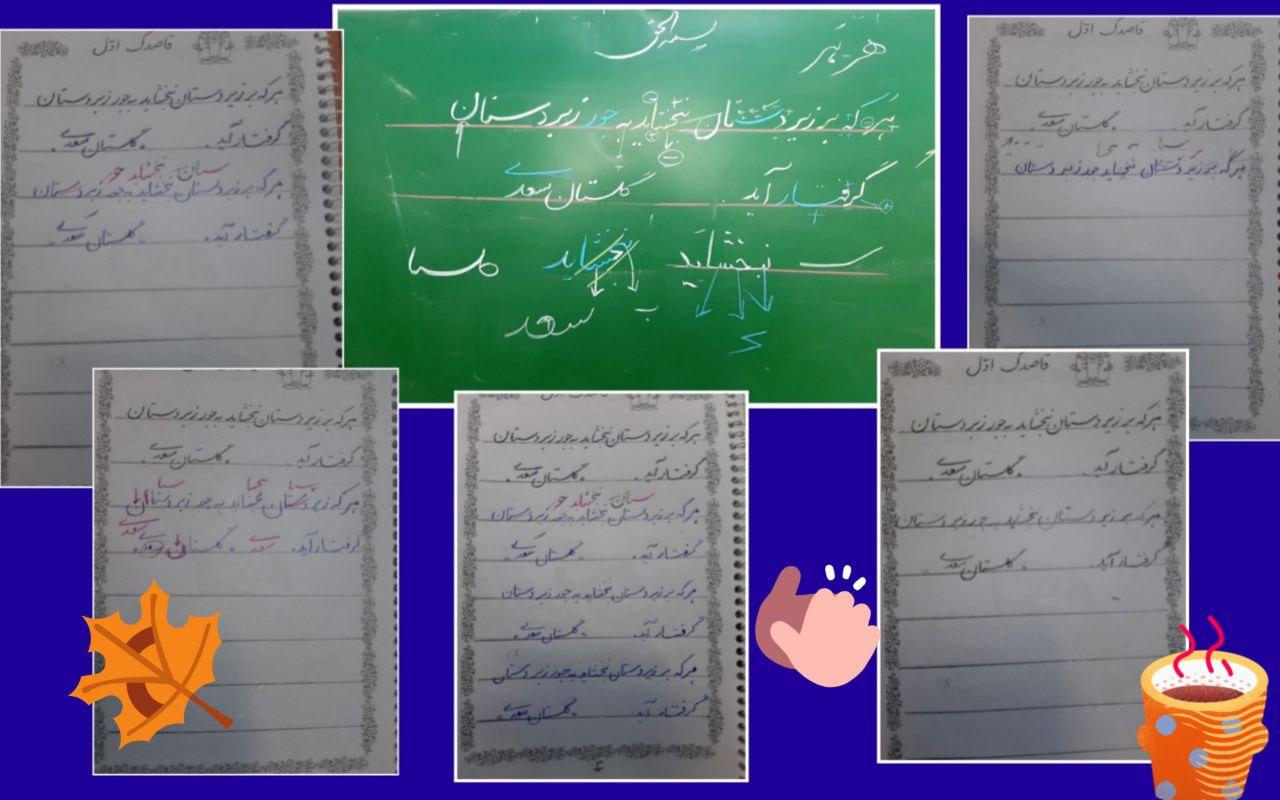 قاصدک اوّل
هر که بر زیر دستان نبخشاید به جور زبر دستان
گرفتار آید. گلستان سعدی.
هر که بر زیر دستان نبخشاید به جور زبر دستان
گرفتار آید. گلستان سعدی.
هر هر
هر که بر زیر دستان نبخشاید به جور زبر دستان
گرفتار آید. گلستان سعدی
نبخشاید نبخشاید
سعد
قاصدک اوّل
هر که بر زیر دستان نبخشاید به جور زبر دستان
گرفتار آید. گلستان سعدی.
هر که بر زیر دستان نبخشاید جور زبر دستان
هر که بر زیر دستان نبخشاید به جور زبر دستان
گرفتار آید. گلستان سعدی.
هر که زیر دستان نبخشاید به جور زبر دستان
گرفتار آید. سعدی. گلستان سعدی
هر که بر زیر دستان نبخشاید به جور زبر دستان
گرفتار آید. گلستان سعدی.
هر که بر زیر دستان نبخشاید به جور زبر دستان
گرفتار آید. گلستان سعدی.
هر که بر زیر دستان نبخشاید به جور زبر دستان
گرفتار آید. گلستان سعدی.
هر که بر زیر دستان نبخشاید به جور زبر دستان
گرفتار آید. گلستان سعدی.
قاصدک اوّل
هر که بر زیر دستان نبخشاید به جور زبر دستان
گرفتار آید. گلستان سعدی.
هر که بر زیر دستان نبخشاید به جور زبر دستان
گرفتار آید. گلستان سعدی.